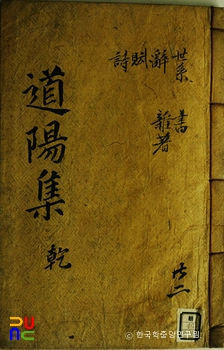 世系 辭 賦 詩
書 雜著
共二
道陽集 乾
ⓒ한국학중앙연구원